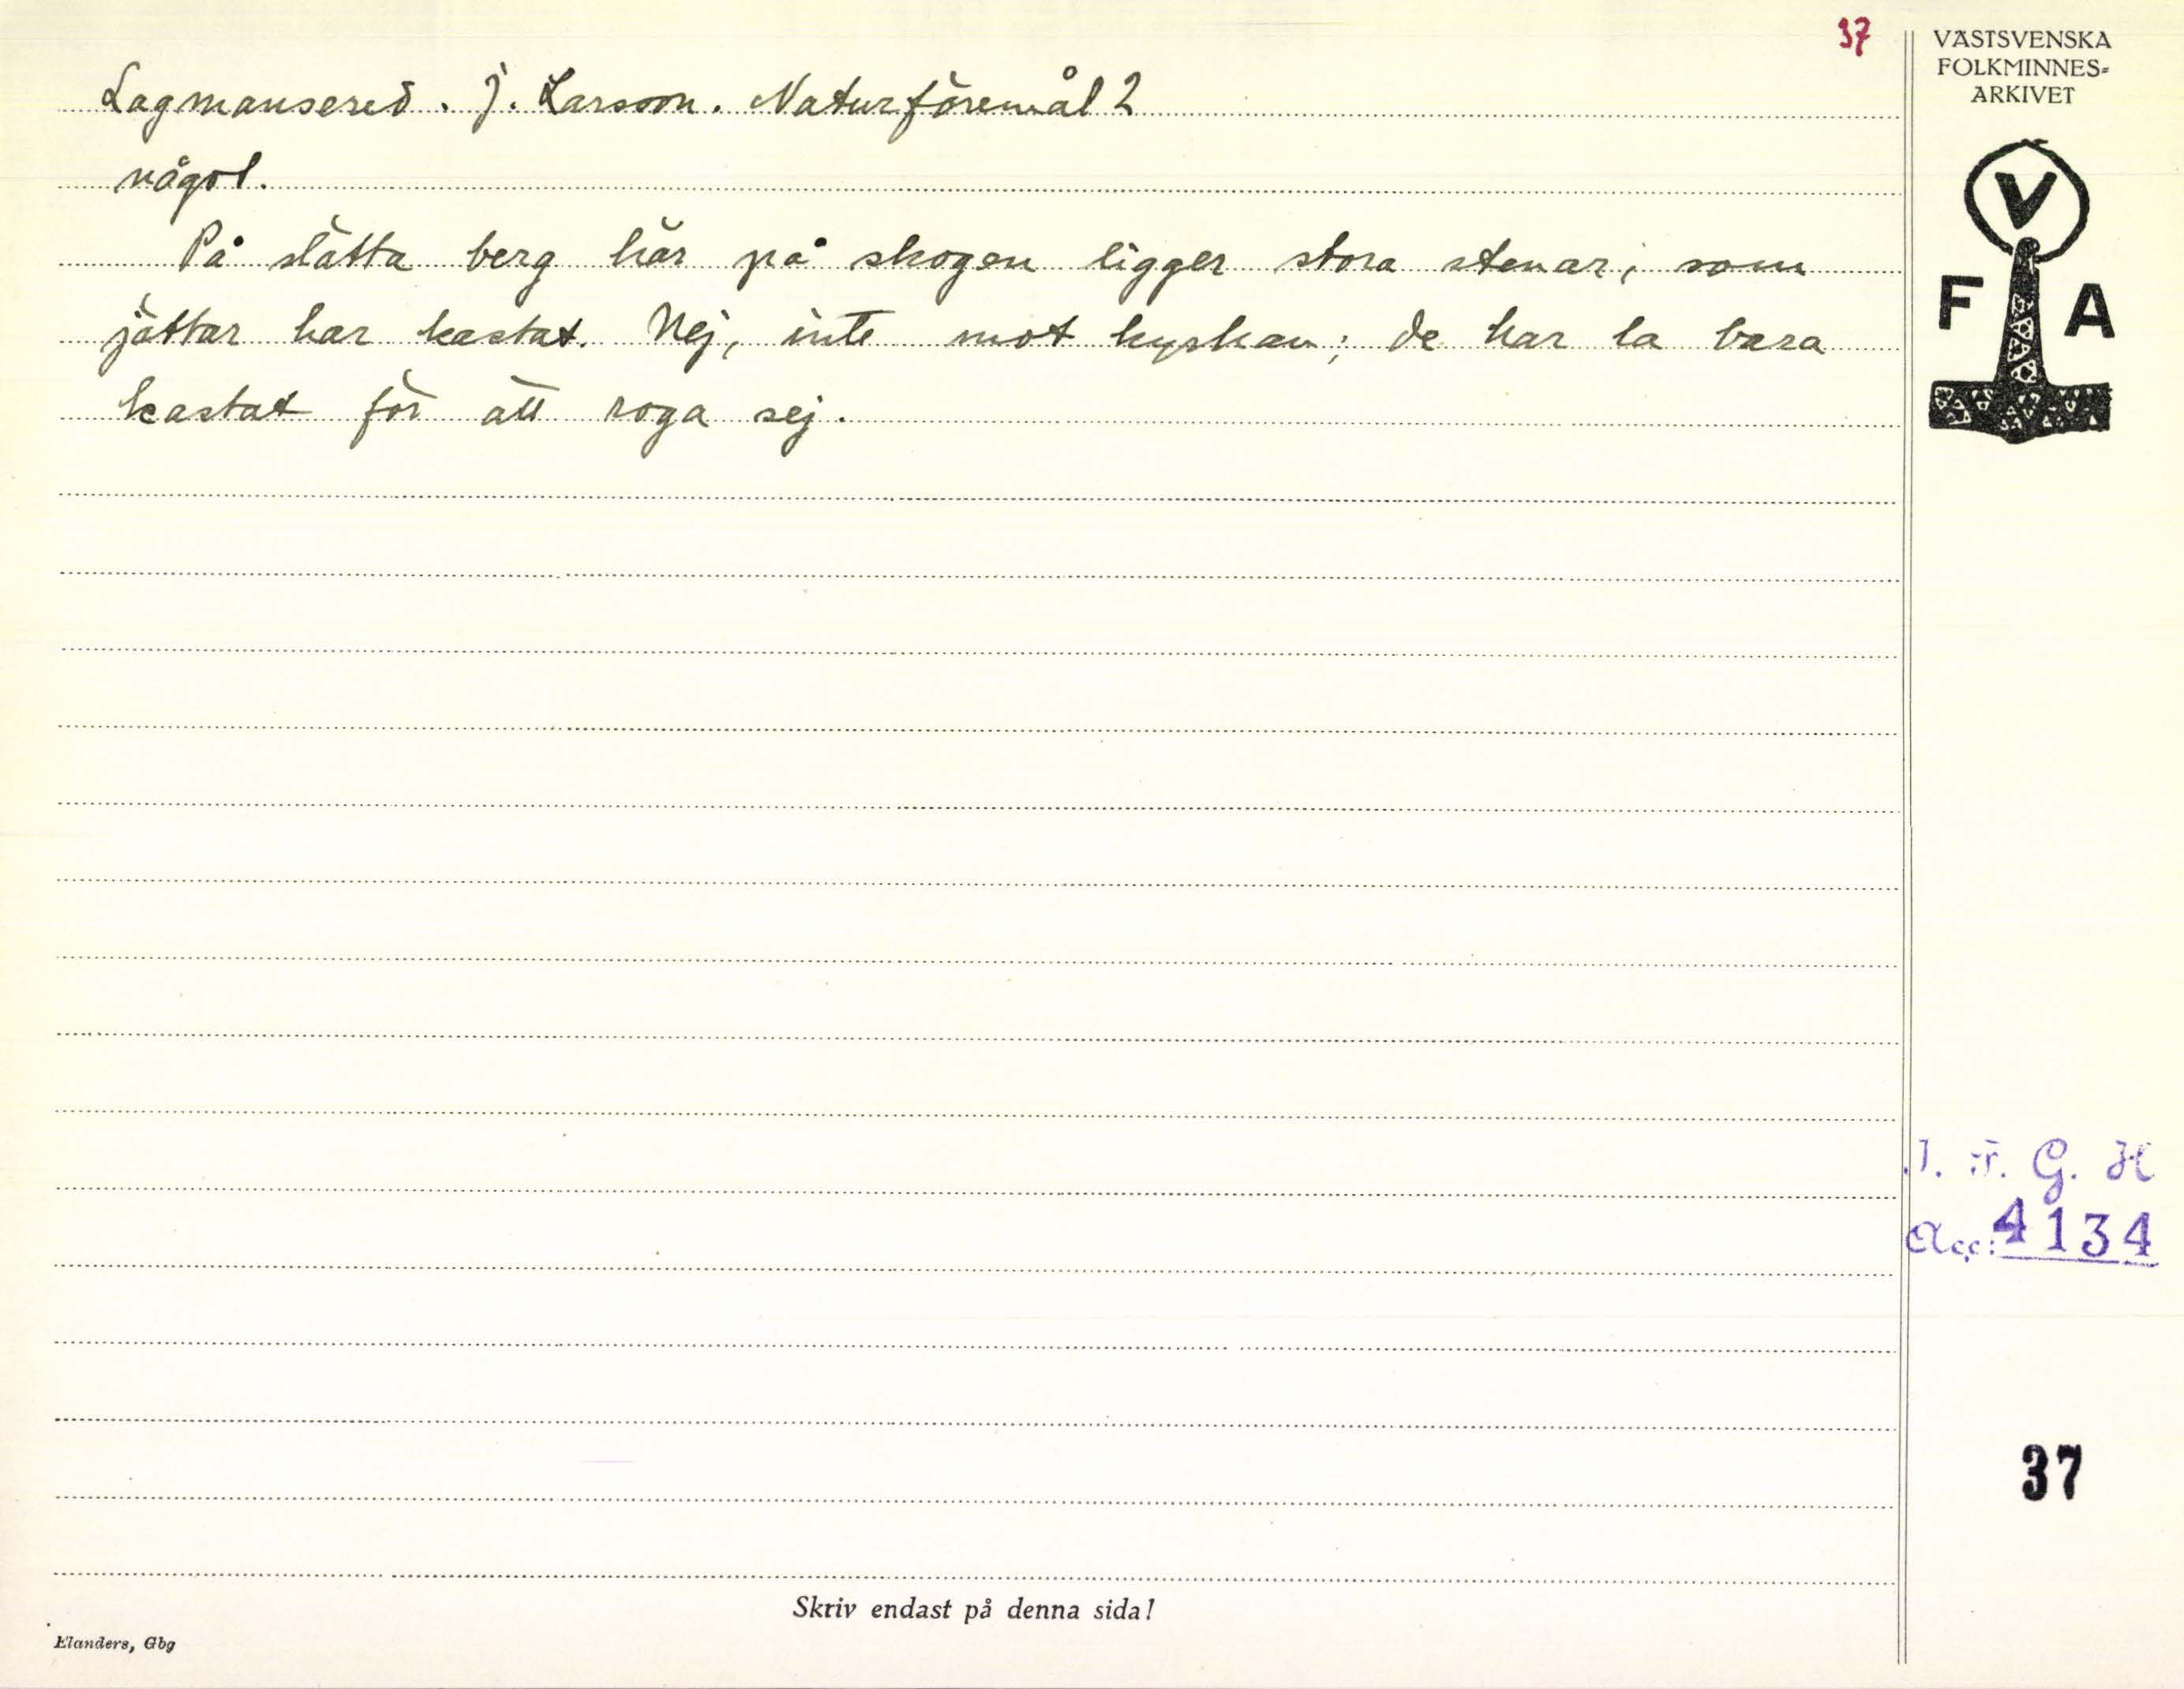 37
VÄSTSVENSKA
FOLKMINNES-
ARKIVET
V
F A
Lagmansered. J. Larsson. Naturföremål 2
någol.
På slätta berg här på skogen ligger stora stenar, som
jättar har kastat. Nej, inte mot kyrkan; de har la bara
kastat för att roga sej.
I. F. G. H
Acc: 4134
37
Skriv endast på denna sida!
Elanders, Gbg